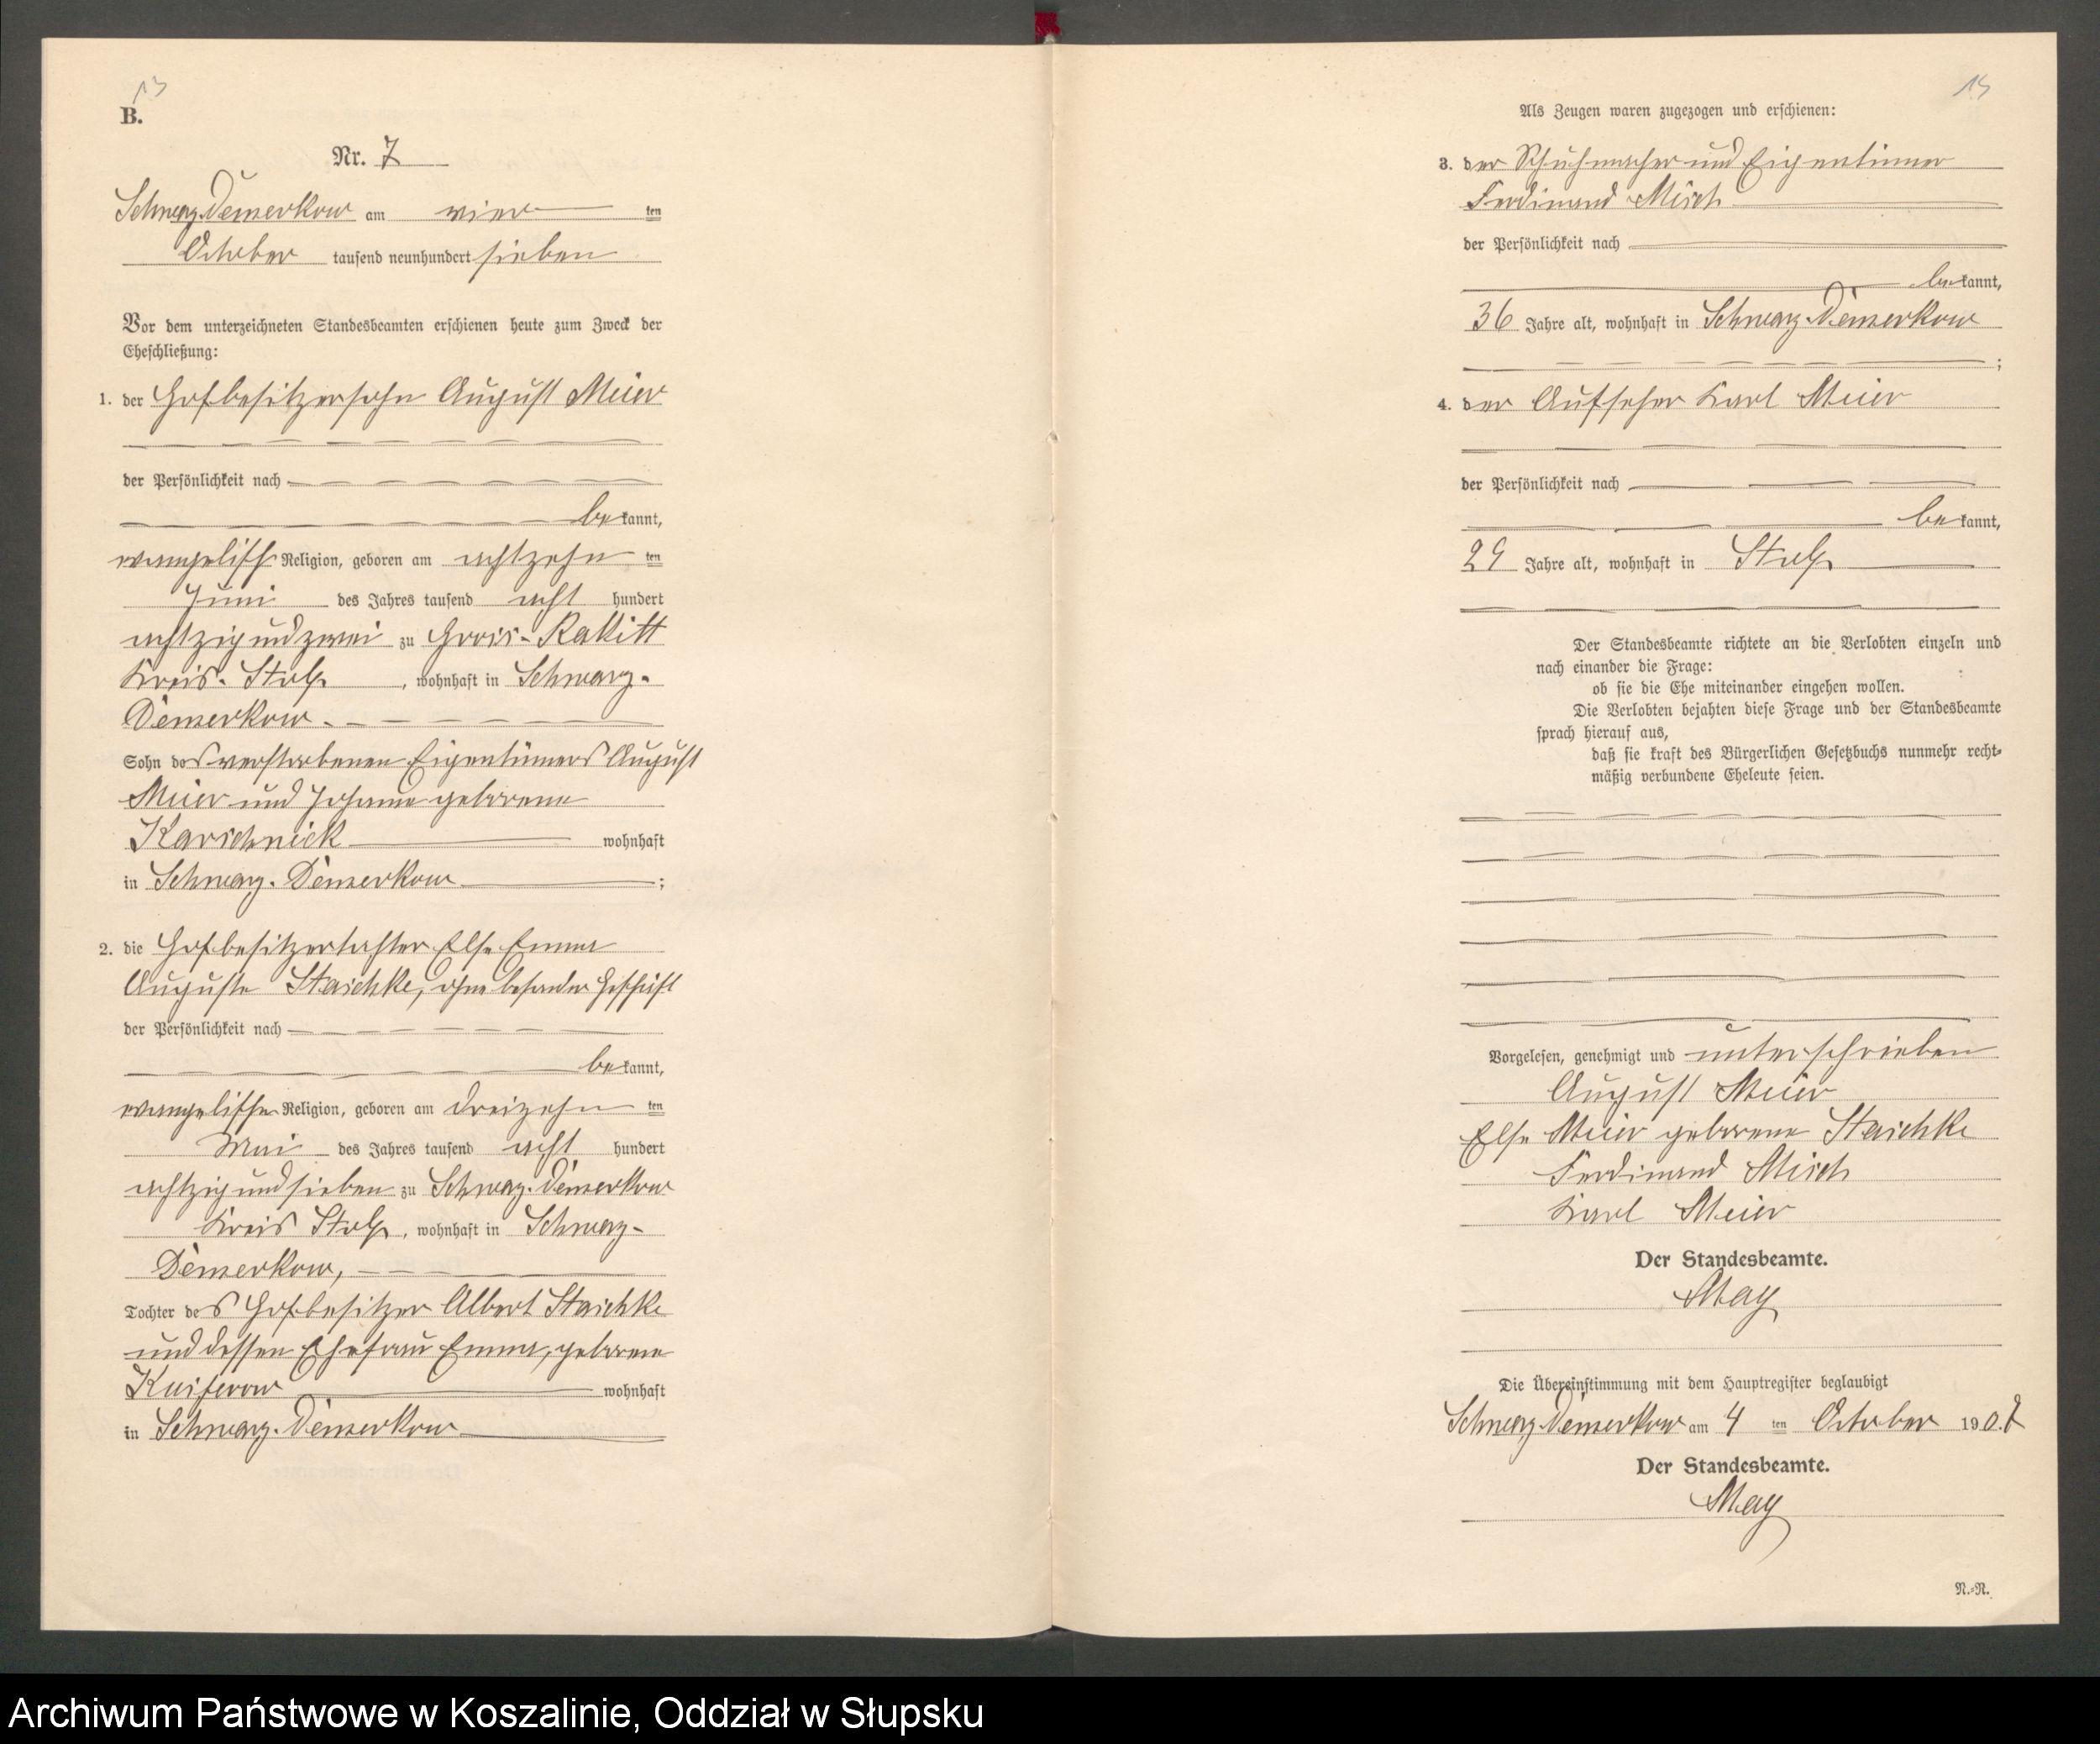 13
B.
Nr. 7
Schwarz-Damerkow am vier ten
October tausend neunhundert sieben
Vor dem unterzeichneten Standesbeamten erschienen heute zum Zweck der
Eheschließung:
1. der Hofbesitzersohn August Meier
der Persönlichkeit nach
be kannt,
evangelisch Religion, geboren am achtzehn ten
Juni des Jahres tausend acht hundert
achtzig und zwei zu Gross-Rakitt
Kreis Stolp, wohnhaft in Schwarz-
Damerkow
Sohn des verstorbenen Eigentümers August
Meier und Johanna geborene
Karschneick wohnhaft
in Schwarz-Damerkow ;
2. die Hofbesitzertochter Else Emma
Auguste Staschke, ohne besonder Geschäft
der Persönlichkeit nach
be kannt,
evangelischer Religion, geboren am dreizehn ten
Mai des Jahres tausend acht hundert
achtzig und sieben zu Schwarz-Damerkow
Kreis Stolp, wohnhaft in Schwarz-
Damerkow,
Tochter des Hofbesitzer Albert Staschke
und dessen Ehefrau Emma, geborene
wohnhaft
in Schwarz-Damerkow
15
Als Zeugen waren zugezogen und erschienen:
3. der Schuhmacher und Eigentümer
Ferdinand Misch
der Persönlichkeit nach
be kannt,
36 Jahre alt, wohnhaft in Schwarz-Damerkow
;
4. der Aufseher Karl Meier
der Persönlichkeit nach
be kannt,
29 Jahre alt, wohnhaft in Stolp
Der Standesbeamte richtete an die Verlobten einzeln und
nach einander die Frage:
ob sie die Ehe miteinander eingehen wollen.
Die Verlobten bejahten diese Frage und der Standesbeamte
sprach hierauf aus,
daß sie kraft des Bürgerlichen Gesetzbuchs nunmehr recht-
mäßig verbundene Eheleute seien.
Vorgelesen, genehmigt und unterschrieben
August Meier
Else Meier geborene Staschke
Ferdinand Misch
Karl Meier
Der Standesbeamte.
May
Die Übereinstimmung mit dem Hauptregister beglaubigt
Schwarz-Damerkow am 4 ten October 1907
Der Standesbeamte.
May
N.-N.
Archiwum Państwowe w Koszalinie, Oddział w Słupsku